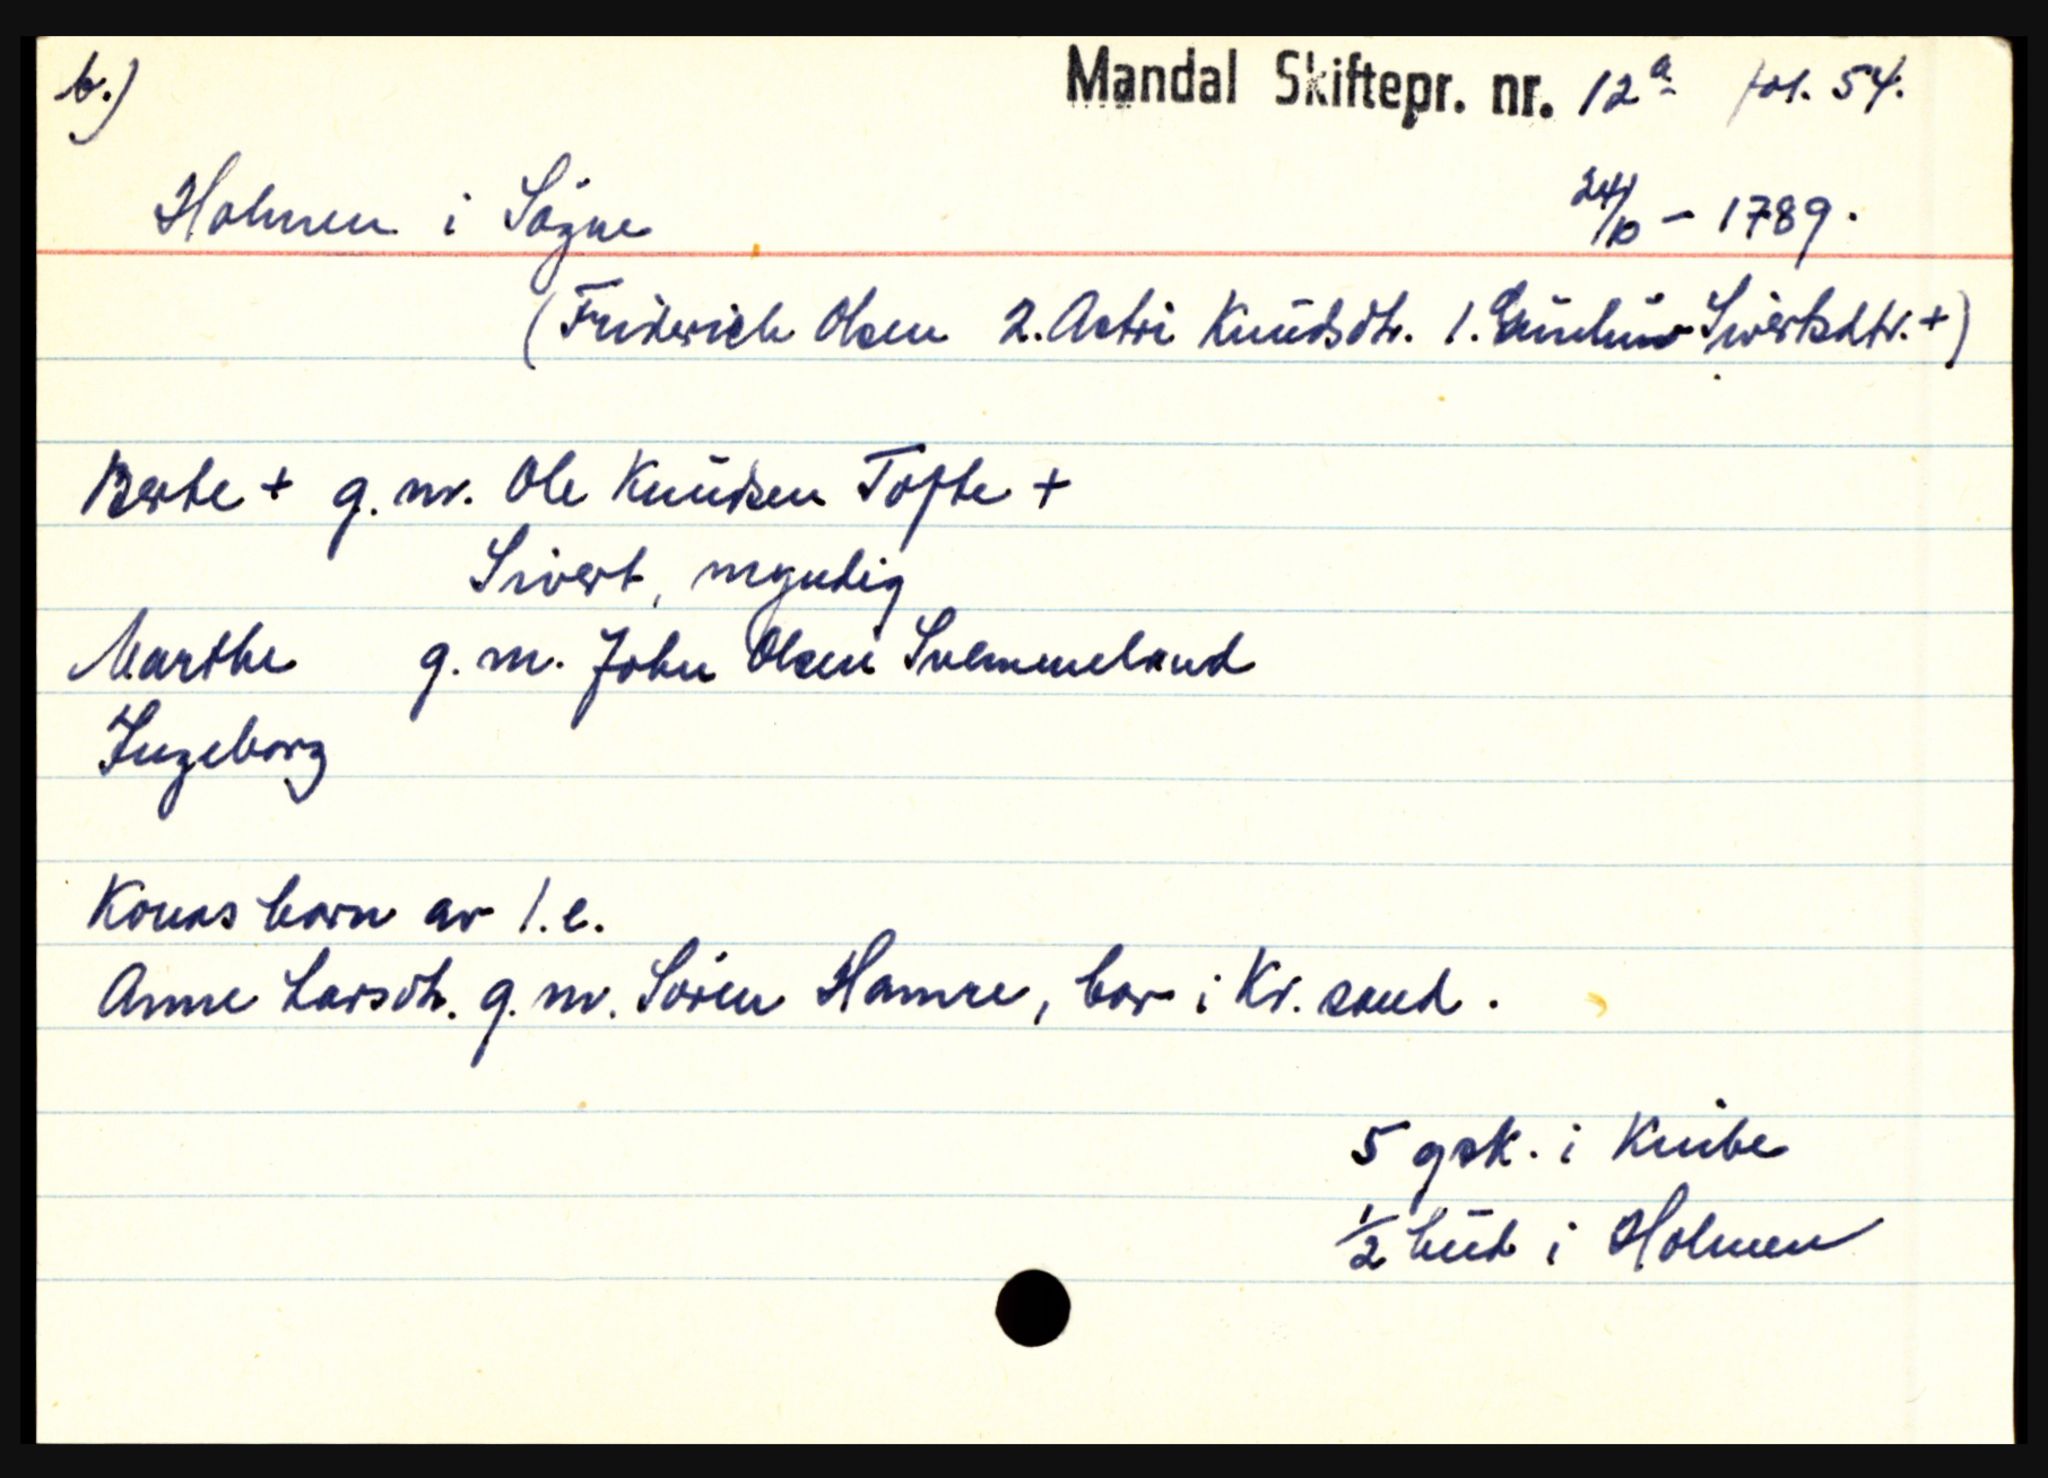 b.) Mandal Skiftepr. nr. 12a fol. 54.
Holmen i Søgne 24/10 - 1789.
(Friderich Olsen 2. Astri Knudsdtr. 1. Sivertsdtr. +)
Berte + g.m. Ole Knudsen Tofte +
Sivert, myndig
Marthe g.m. John Olsen Svemmeland
Ingeborg
Konas born av 1.e.
Anne Larsdtr. g.m. Søren Hamre, bor i Kr.sand.
5 gsk. i Knibe
1/2 hud i Holmen